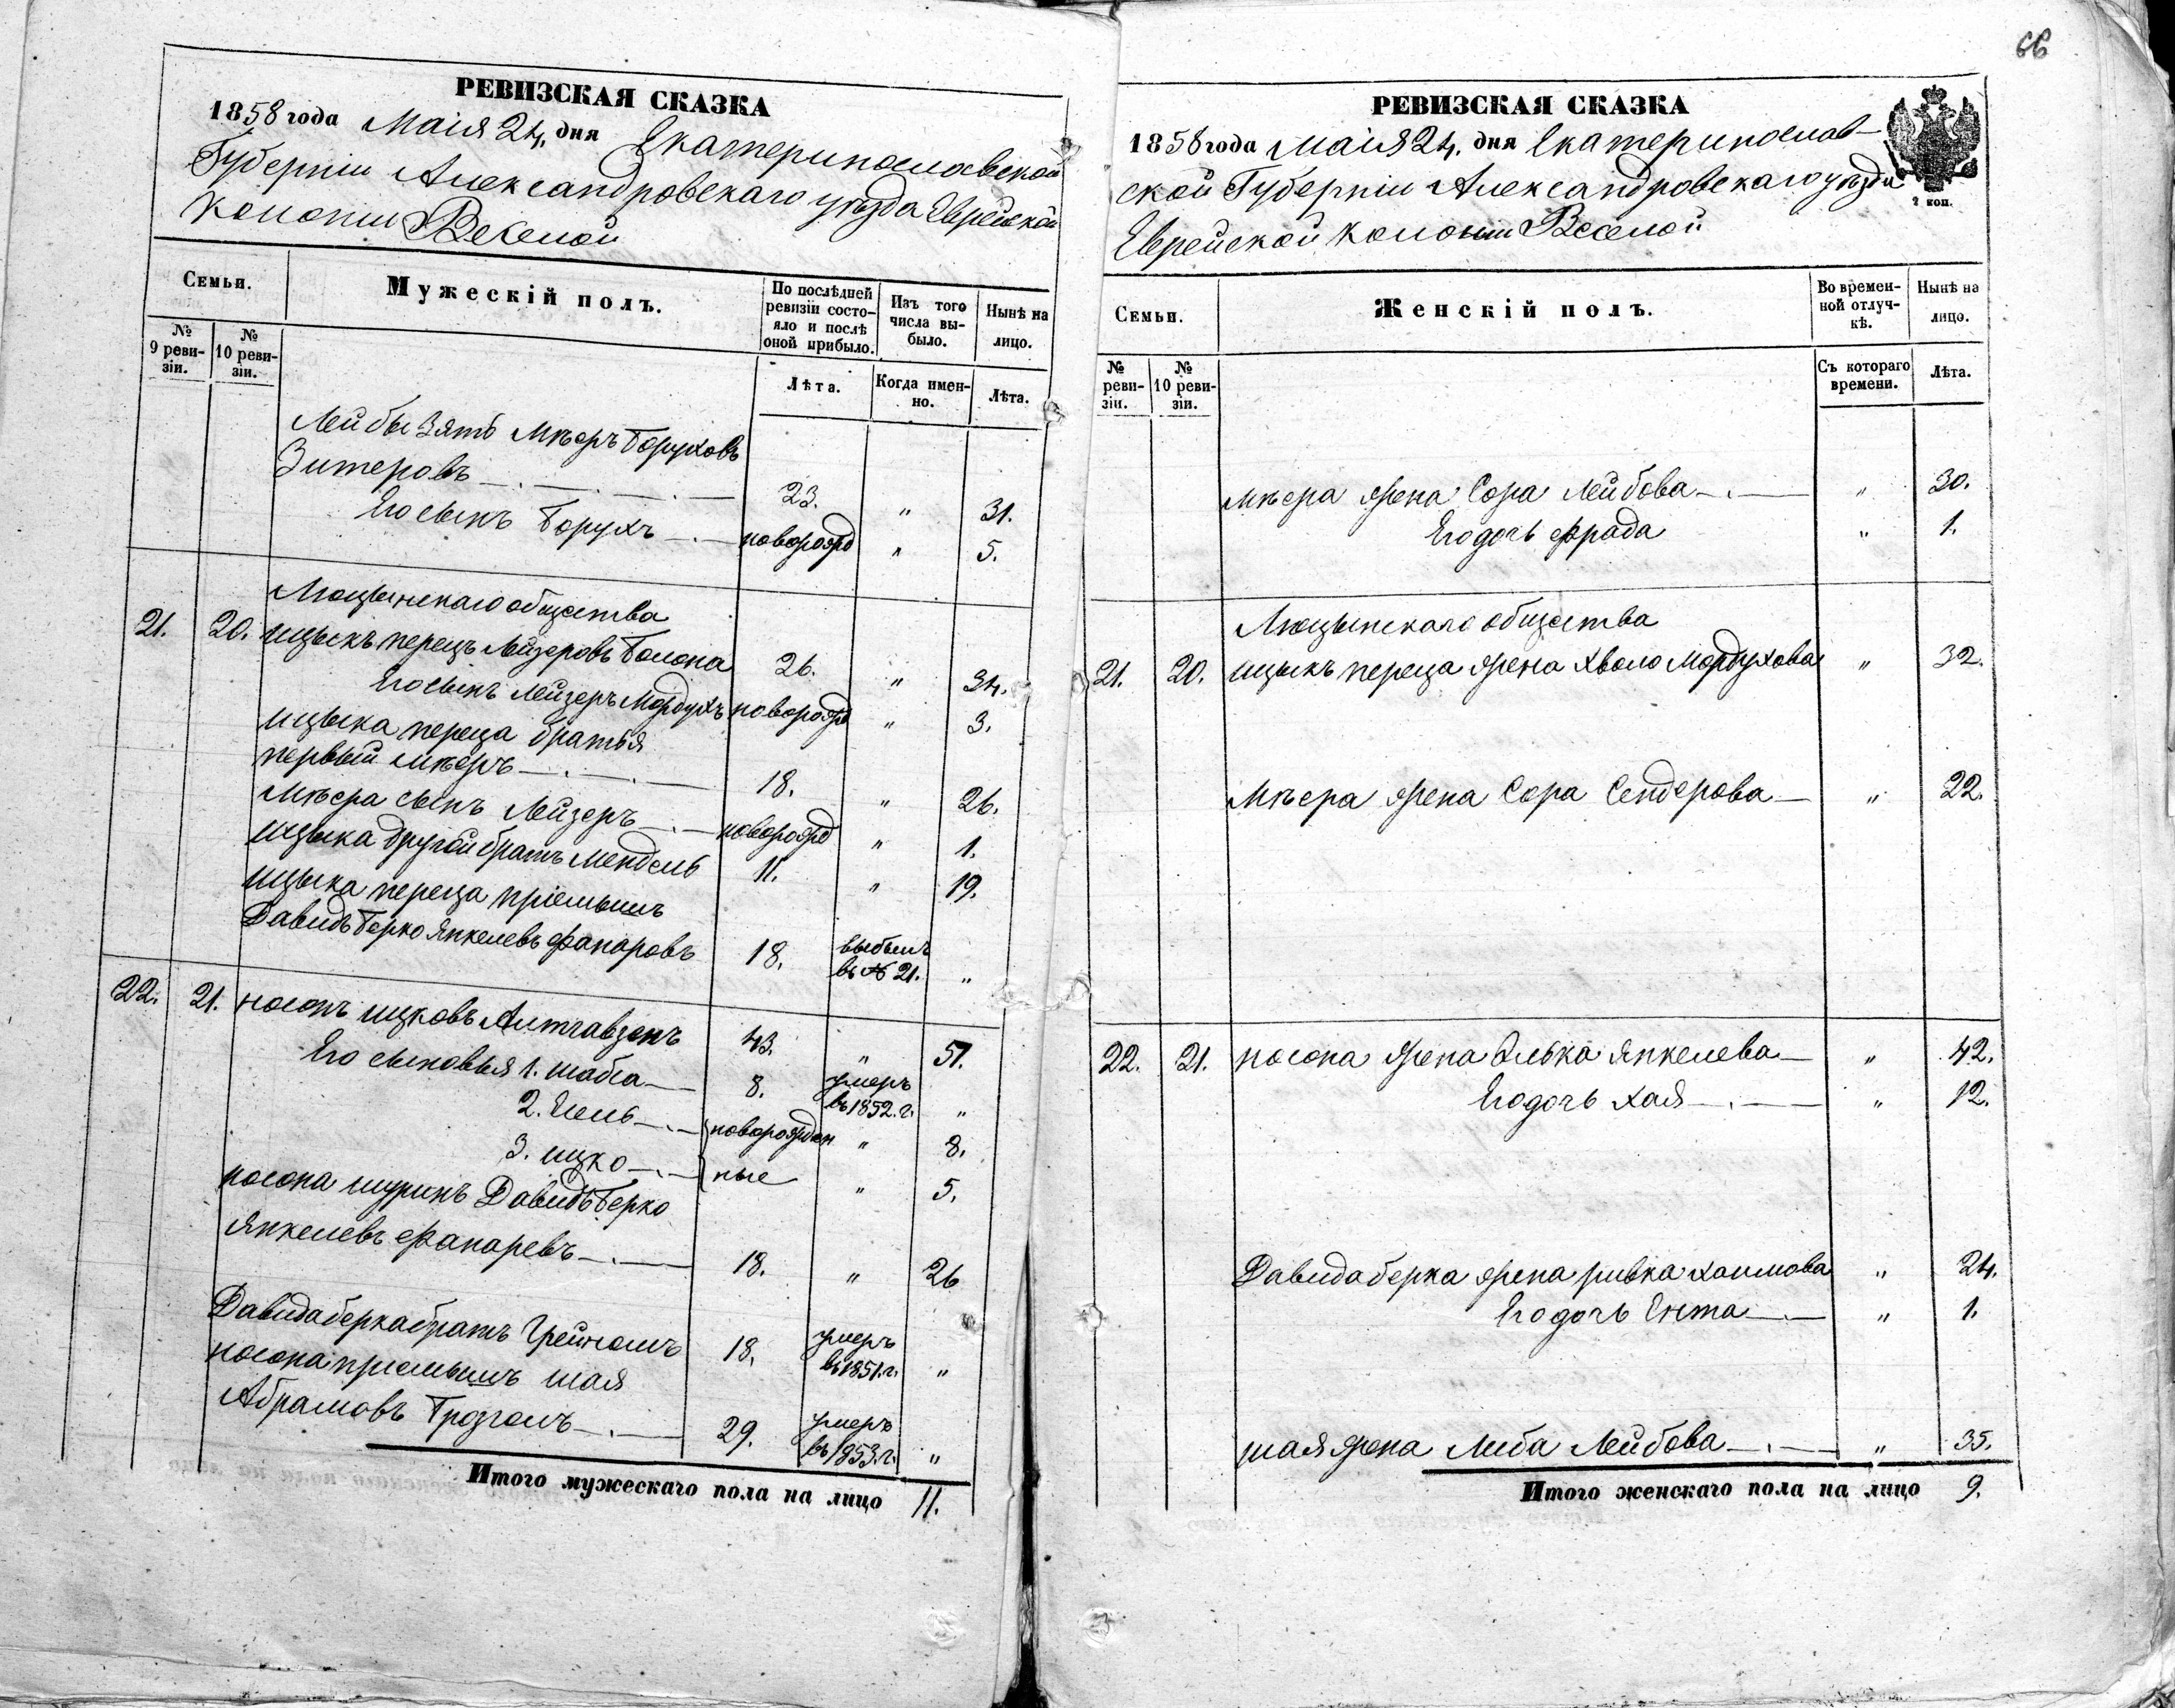 РЕВИЗСКАЯ СКАЗКА
1858 года Маія 24, дня Екатеринославской
Губерніи Александровскаго уѣзда Еврейской
Колоніи Веселой
Семьи.
Мужескій полъ.
По послѣдней ревизіи состояло и послѣ оной прибыло.
Изъ того числа выбыло.
Нынѣ на лицо.
№ 9 ревизіи.
№ 10 ревизіи.
Лѣта.
Когда именно.
Лѣта.
Лейбы зять Мѣеръ Боруховъ
Зитеровъ 23. " 31.
Его сынъ Борухъ новорожд " 5.
Люцынскаго общества
21. 20. Ицыкъ перецъ Лейзеровъ Болона 26. " 34.
Его сынъ Лейзеръ Мордухъ новорожд " 3.
Ицыка переца братья
первый Мѣеръ 18. " 26.
Мѣера сынъ Лейзеръ новорожд " 1.
Ицыка другой братъ Мендель 11. " 19.
Ицыка переца пріемышъ
Давидъ Берко Янкелевъ Фанаровъ 18. выбылъ въ № 21. "
22. 21. Носонъ Ицковъ 43. " 51.
Его сыновья 1. Шабса 8. умеръ въ 1852. г. "
2. новорожден " 8.
3. Ицко ные " 5.
Носона шуринъ Давидъ Берко
Янкелевъ Фанаревъ 18. " 26
Давида берка братъ 18. умеръ въ 1851. г. "
Носона пріемышъ Шая
Абрамовъ 29. умеръ въ 1853. г. "
Итого мужескаго пола на лицо 11.
66
РЕВИЗСКАЯ СКАЗКА
1858 года маія 24. дня Екатеринослав-
ской Губерніи Александровскаго уѣзда
2 коп.
Еврейской Колоніи Веселой
Семьи.
Женскій полъ.
Во временной отлучкѣ.
Нынѣ на лицо.
№ ревизіи.
№ 10 ревизіи.
Съ котораго времени.
Лѣта.
Мѣера жена Сора Лейбова " 30.
Его дочь Фрада " 1.
Люцынскаго общества
21. 20. Ицыкъ переца жена Хволо Мордухова " 32.
Мѣера жена Сора Сендерова " 22.
22. 21. Носона жена Элька Янкелева " 42.
Его дочь Хая " 12.
Давида берка жена ривка Хаимова " 24.
Его дочь Ента " 1.
Шая жена Либа Лейбова " 35.
Итого женскаго пола на лицо 9.